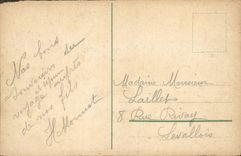 Nos bons
souvenirs du
voyage
de nos fils
H.
Madame Monsieur
Laillet
8 Rue Rivay
Levallois